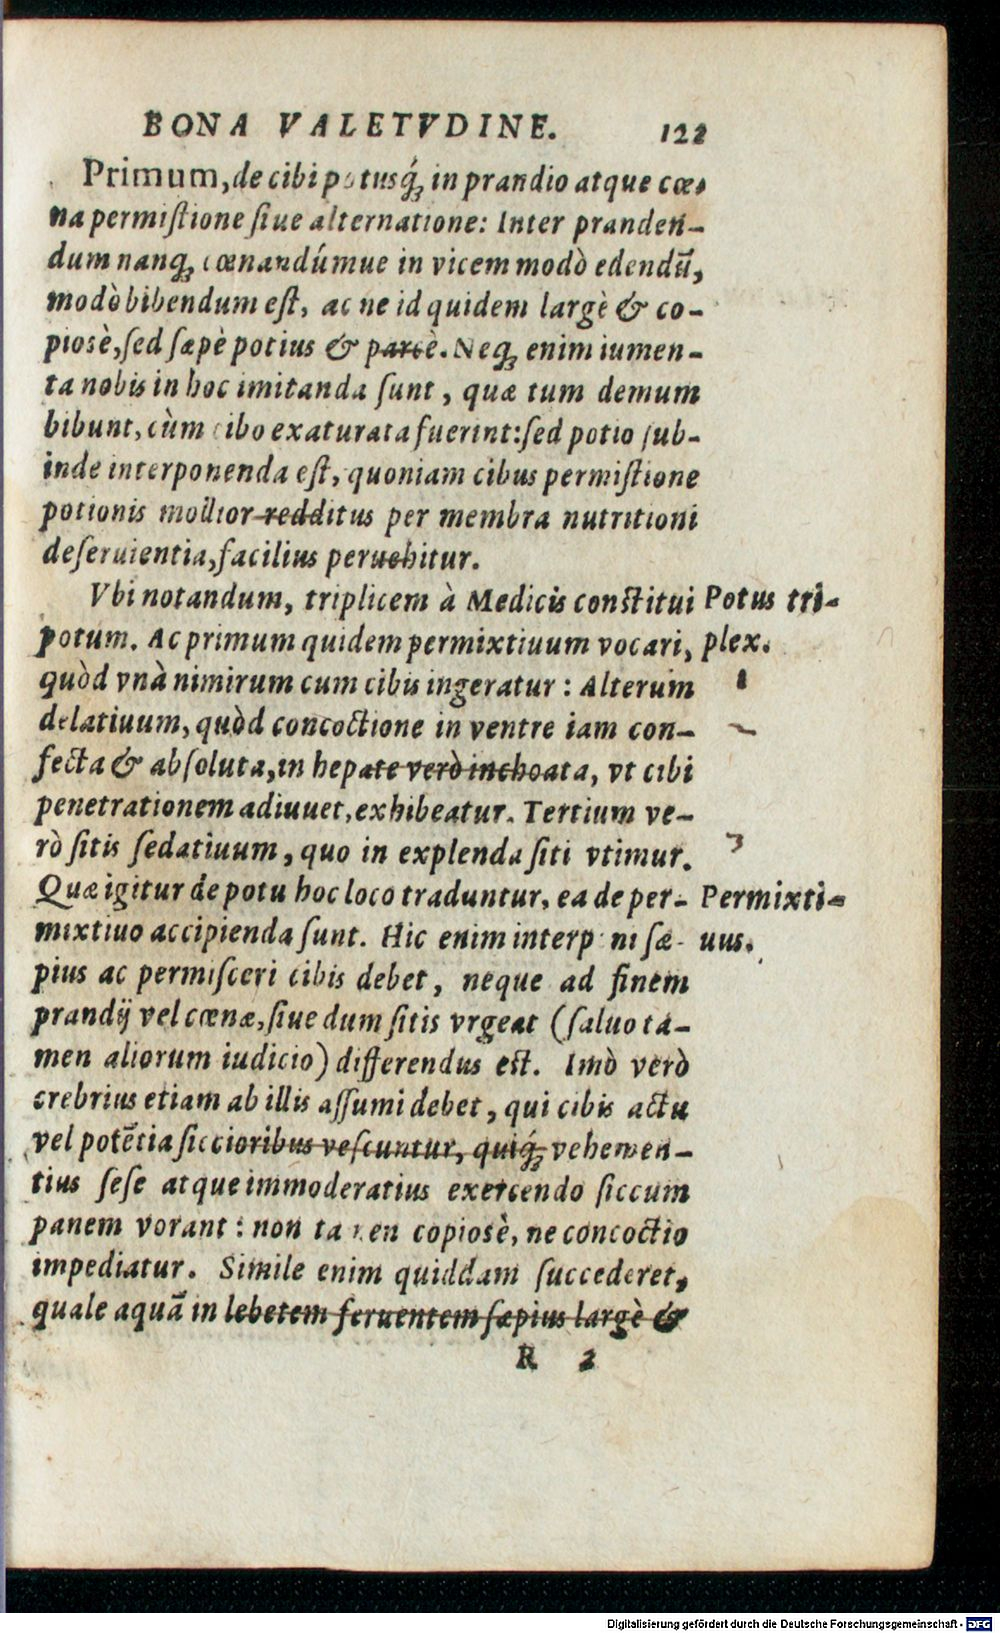 BONA VALETVDINE. 122
Primum, de cibi potusq́ꝫ in prandio atque cœ-
na permiſtione ſiue alternatione: Inter pranden-
dum nanqꝫ cœnandúmue in vicem modò edendū,
modò bibendum eſt, ac ne id quidem largè & co-
piosè, ſed ſæpè potius & parcè. Neqꝫ enim iumen-
ta nobis in hoc imitanda ſunt, quæ tum demum
bibunt, cùm cibo exaturata fuerint: ſed potio ſub-
inde interponenda eſt, quoniam cibus permiſtione
potionis mollior redditus per membra nutritioni
deſeruientia, facilius peruehitur.
Vbi notandum, triplicem à Medicis conſtitui
Potus tri-
potum. Ac primum quidem permixtiuum vocari,
plex.
quòd vnà nimirum cum cibis ingeratur: Alterum
1
delatiuum, quòd concoctione in ventre iam con-
2
fecta & abſoluta, in hepate verò inchoata, vt cibi
penetrationem adiuuet, exhibeatur. Tertium ve-
rò ſitis ſedatiuum, quo in explenda ſiti vtimur.
3
Quæ igitur de potu hoc loco traduntur, ea de per-
Permixti-
mixtiuo accipienda ſunt. Hic enim interponi ſæ-
uus.
pius ac permiſceri cibis debet, neque ad finem
prandij vel cœnæ, ſiue dum ſitis vrgeat (ſaluo ta-
men aliorum iudicio) differendus eſt. Imò verò
crebrius etiam ab illis aſſumi debet, qui cibis actu
vel potētia ſiccioribus veſcuntur, quiq́ꝫ vehemen-
tius ſeſe atque immoderatius exercendo ſiccum
panem vorant: non tamen copiosè, ne concoctio
impediatur. Simile enim quiddam ſuccederet,
quale aquā in lebetem feruentem ſæpius largè &
R 2
Digitalisierung gefördert durch die Deutsche Forschungsgemeinschaft - DFG